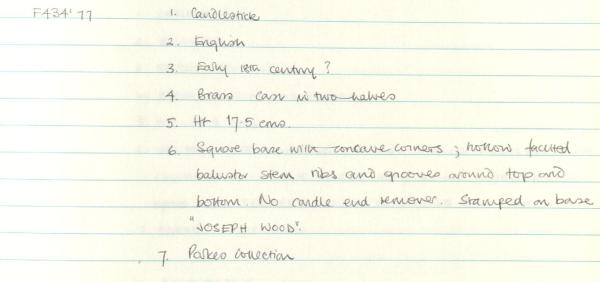 F434'77 1. Candlestick
2. English
3. Early 18th century ?
4. Brass cast in two halves
5. Ht 17.5 cms.
6. Square base with concave corners ; hollow faceted
baluster stem ribs and grooves around top and
bottom. No candle end remover. Stamped on base
"JOSEPH WOOD".
7. Collection